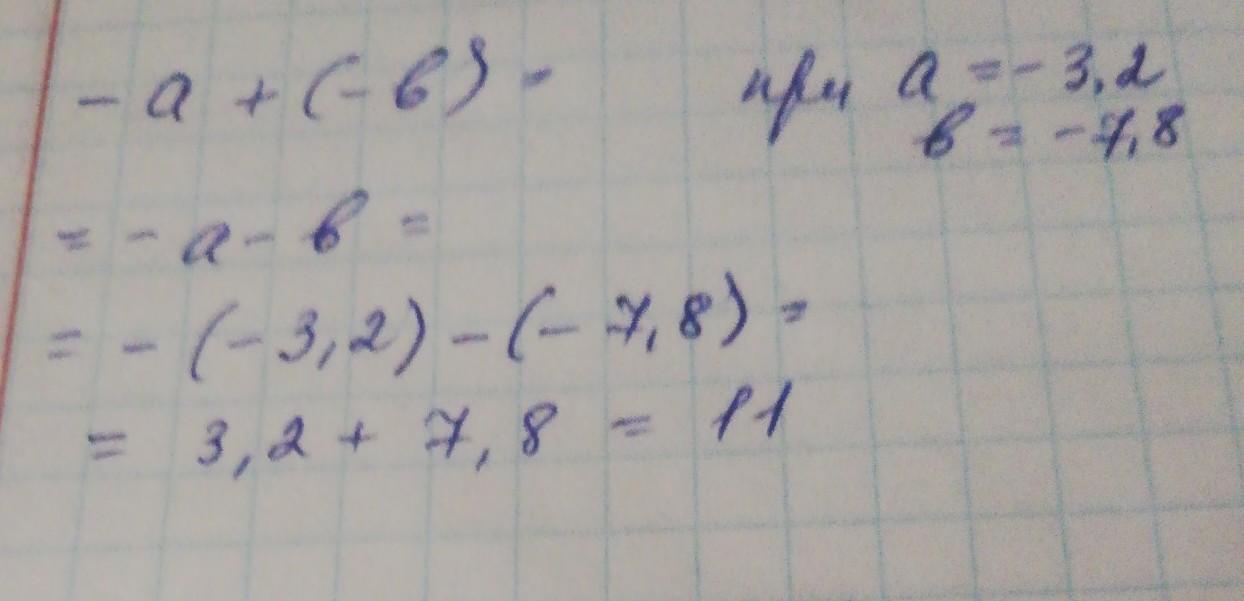 - a + (- в) = при a = - 3,2
в = - 7,8
= - a - в =
= - (- 3,2) - (- 7,8) =
= 3,2 + 7,8 = 11